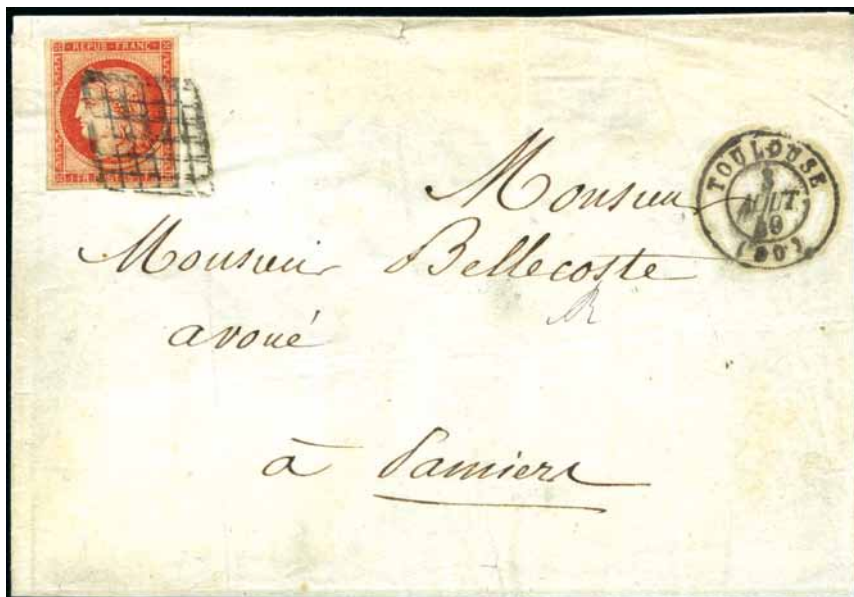 REPUB. FRANC.
TOULOUSE
3
AOUT
49
Monsieur
Monsieur Bellecoste
avoué
à Pamiers